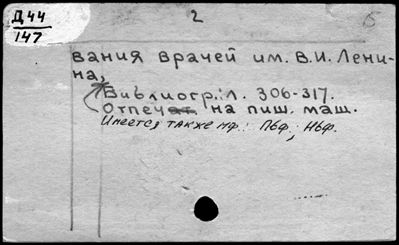 Д44
147
2
5
вания врачей им. В.И. Лени-
на,
Библиогр.: л. 306-317.
Отпечат на пиш. маш.
Имеется также мф.: Пбф; Нбф.